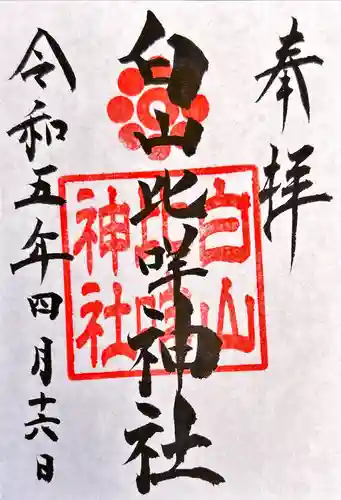 奉拝
白山比咩神社
白山比咩神社
令和五年四月十六日